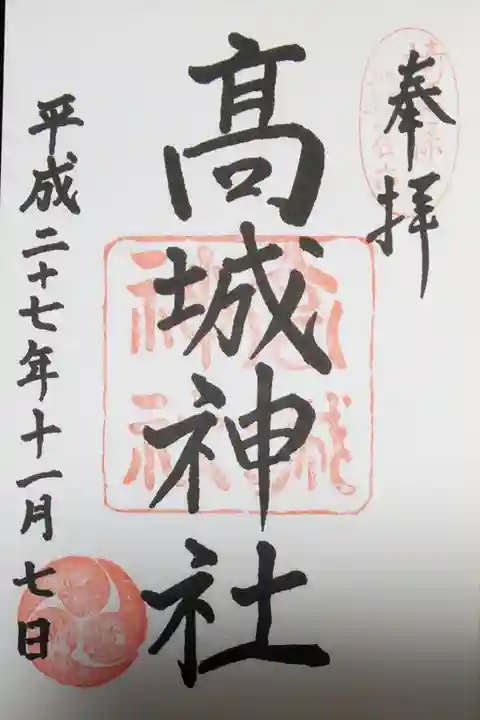 奉拝
髙城神社
平成二十七年十一月七日